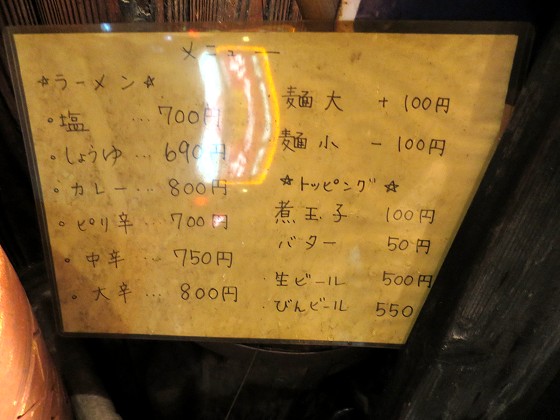 メニュー
☆ラーメン☆
。塩 … 700円
。しょうゆ … 690円
。カレー … 800円
。ピリ辛 … 700円
。中辛 … 750円
。大辛 … 800円
麺大 + 100円
麺小 − 100円
☆トッピング☆
煮玉子 100円
バター 50円
生ビール 500円
びんビール 550